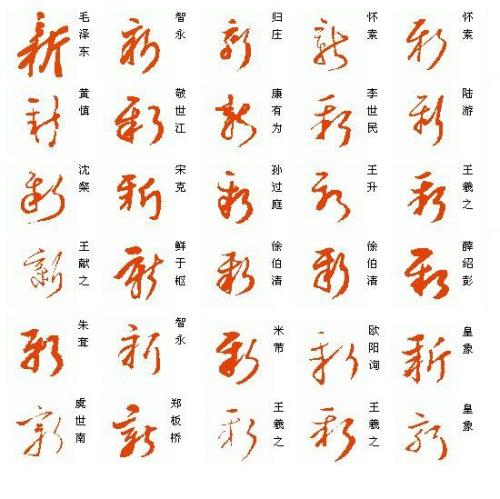 新 毛泽东
新 智永
新 归庄
新 怀素
新 怀素
新 黄慎
新 敬世江
新 康有为
新 李世民
新 陆游
新 沈粲
新 宋克
新 孙过庭
新 王升
新 王羲之
新 王献之
新 鲜于枢
新 徐伯清
新 徐伯清
新 薛绍彭
新 朱耷
新 智永
新 米芾
新 欧阳询
新 皇象
新 虞世南
新 郑板桥
新 王羲之
新 王羲之
新 皇象